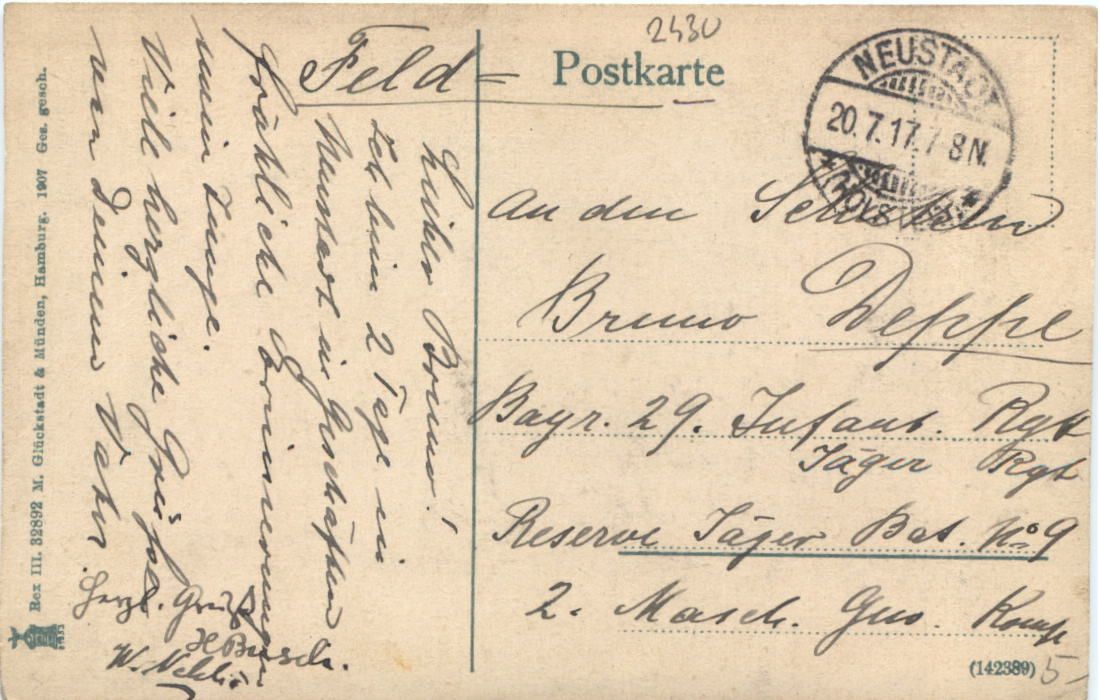 2430
Feld-
Postkarte
NEUSTADT
20.7.17. 7-8 N.
* (HOLSTEIN) *
An den Schützen
Bruno Deppe
Bayr. 29. Infant. Rgt
Jäger Rgt
Reserve Jäger Bat. No 9
2. Masch. Gew. Komp
(142389)
5-
Lieber Bruno!
Ich bin 2 Tage in
Neustadt in Geschäften
fröhliche Erinnerungen
mein Junge.
Viele herzliche Grüße
von Deinem Vater
Herzl. Gruß
H Busch.
W.
Rex III. 32892 M. Glückstadt & Münden, Hamburg. 1907 Ges. gesch.